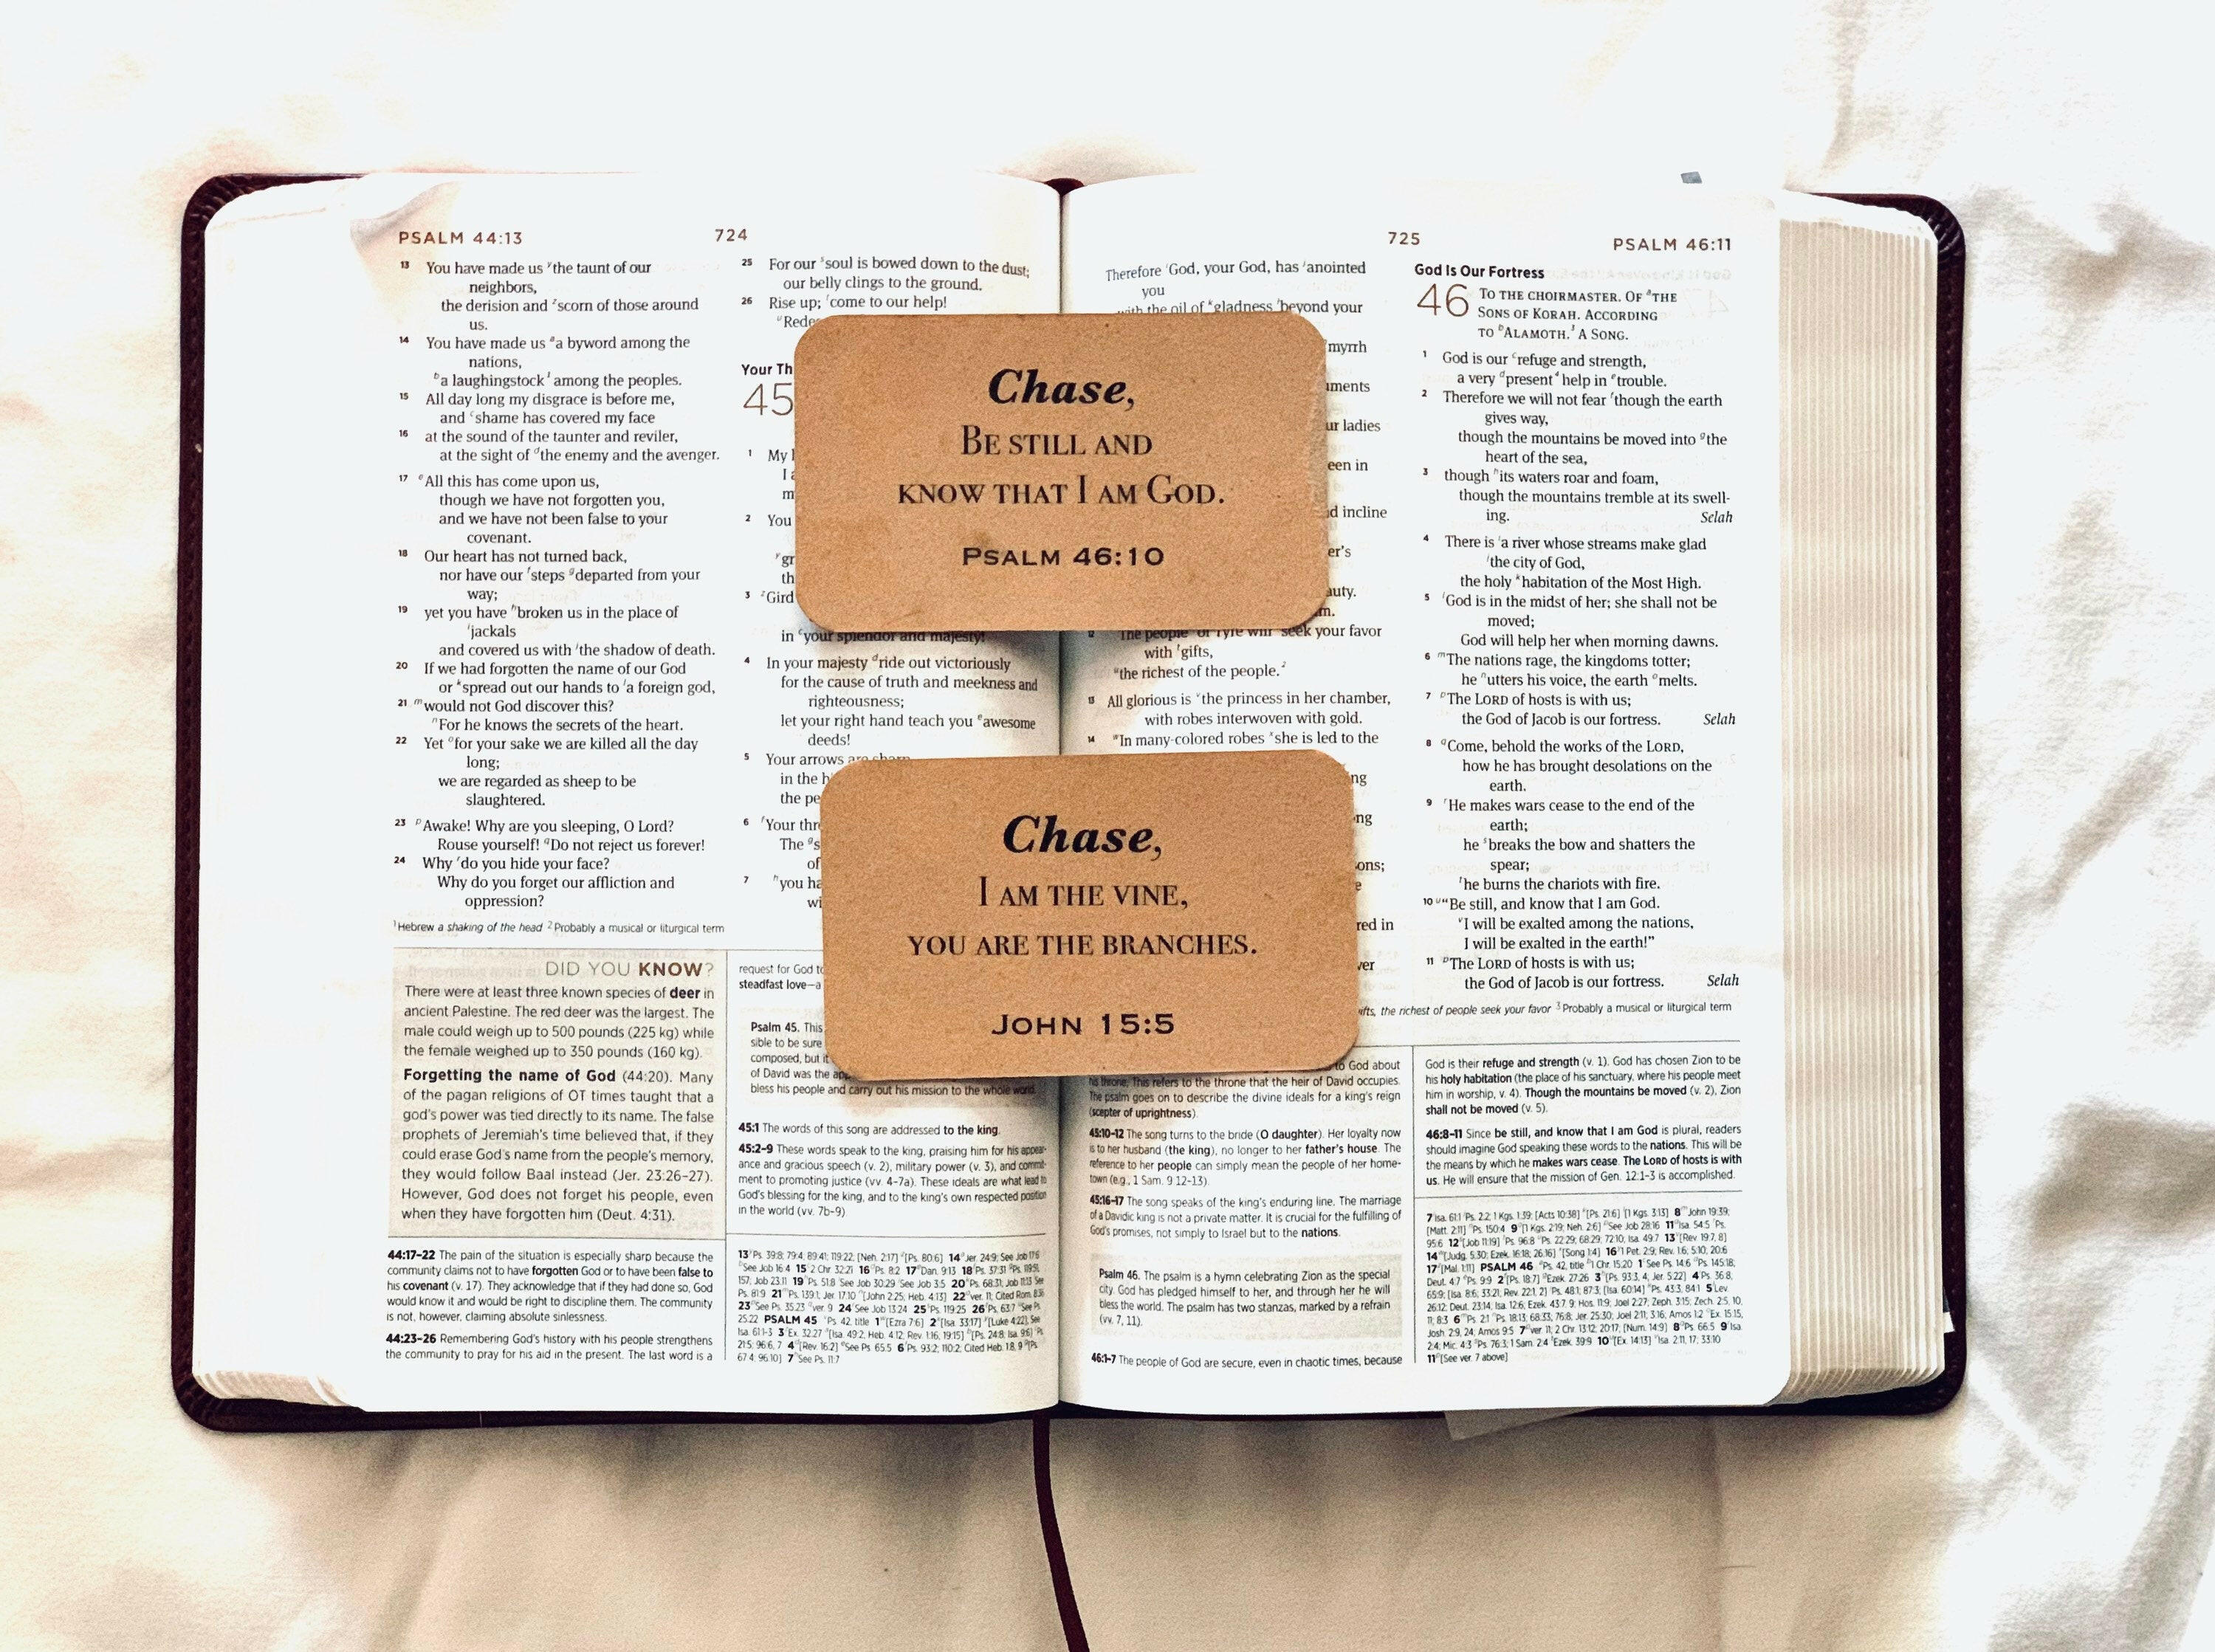 PSALM 44:13
724
13 You have made us ʸthe taunt of our
neighbors,
the derision and ᶻscorn of those around
us.
14 You have made us ᵃa byword among the
nations,
ᵇa laughingstock¹ among the peoples.
15 All day long my disgrace is before me,
and ᶜshame has covered my face
16 at the sound of the taunter and reviler,
at the sight of ᵈthe enemy and the avenger.
17 ᵉAll this has come upon us,
though we have not forgotten you,
and we have not been false to your
covenant.
18 Our heart has not turned back,
nor have our ᶠsteps ᵍdeparted from your
way;
19 yet you have ʰbroken us in the place of
ⁱjackals
and covered us with ʲthe shadow of death.
20 If we had forgotten the name of our God
or ᵏspread out our hands to ˡa foreign god,
21 ᵐwould not God discover this?
ⁿFor he knows the secrets of the heart.
22 Yet ᵒfor your sake we are killed all the day
long;
we are regarded as sheep to be
slaughtered.
23 ᵖAwake! Why are you sleeping, O Lord?
Rouse yourself! ᑫDo not reject us forever!
24 Why ʳdo you hide your face?
Why do you forget our affliction and
oppression?
¹Hebrew a shaking of the head ²Probably a musical or liturgical term
DID YOU KNOW?
There were at least three known species of deer in
ancient Palestine. The red deer was the largest. The
male could weigh up to 500 pounds (225 kg) while
the female weighed up to 350 pounds (160 kg).
Forgetting the name of God (44:20). Many
of the pagan religions of OT times taught that a
god's power was tied directly to its name. The false
prophets of Jeremiah's time believed that, if they
could erase God's name from the people's memory,
they would follow Baal instead (Jer. 23:26–27).
However, God does not forget his people, even
when they have forgotten him (Deut. 4:31).
44:17–22 The pain of the situation is especially sharp because the
community claims not to have forgotten God or to have been false to
his covenant (v. 17). They acknowledge that if they had done so, God
would know it and would be right to discipline them. The community
is not, however, claiming absolute sinlessness.
44:23–26 Remembering God's history with his people strengthens
the community to pray for his aid in the present. The last word is a
25 For our ˢsoul is bowed down to the dust;
our belly clings to the ground.
26 Rise up; ᵗcome to our help!
Your Th
45
1 My
I
m
2 You
gr
th
3 Gird
in ᶜyour splendor and majesty!
4 In your majesty ᵈride out victoriously
for the cause of truth and meekness and
righteousness;
let your right hand teach you ᵉawesome
deeds!
5 Your arrows are sharp
in the h
the pe
6 ᶠYour thr
The ᵍs
of
7 ʰyou ha
wi
request for God to
steadfast love—a
Psalm 45. This
sible to be sure
composed, but it
of David was the
bless his people and carry out his mission to the whole world.
45:1 The words of this song are addressed to the king.
45:2–9 These words speak to the king, praising him for his appear-
ance and gracious speech (v. 2), military power (v. 3), and commit-
ment to promoting justice (vv. 4–7a). These ideals are what lead to
God's blessing for the king, and to the king's own respected position
in the world (vv. 7b–9)
Chase,
BE STILL AND
KNOW THAT I AM GOD.
PSALM 46:10
Chase,
I AM THE VINE,
YOU ARE THE BRANCHES.
JOHN 15:5
725
PSALM 46:11
Therefore ⁱGod, your God, has ʲanointed
you
with the oil of ᵏgladness ˡbeyond your
myrrh
ur ladies
een in
d incline
er's
auty.
12 The people of Tyre will seek your favor
with ᵗgifts,
ᵘthe richest of the people.²
13 All glorious is ᵛthe princess in her chamber,
with robes interwoven with gold.
14 ʷIn many-colored robes ˣshe is led to the
ng
ng
ons;
e
red in
ver
ifts, the richest of people seek your favor ³Probably a musical or liturgical term
to God about
his throne. This refers to the throne that the heir of David occupies.
The psalm goes on to describe the divine ideals for a king's reign
(scepter of uprightness).
45:10–12 The song turns to the bride (O daughter). Her loyalty now
is to her husband (the king), no longer to her father's house. The
reference to her people can simply mean the people of her home-
town (e.g., 1 Sam. 9:12–13).
45:16–17 The song speaks of the king's enduring line. The marriage
of a Davidic king is not a private matter. It is crucial for the fulfilling of
God's promises, not simply to Israel but to the nations.
Psalm 46. The psalm is a hymn celebrating Zion as the special
city. God has pledged himself to her, and through her he will
bless the world. The psalm has two stanzas, marked by a refrain
(vv. 7, 11).
46:1–7 The people of God are secure, even in chaotic times, because
God Is Our Fortress
46 TO THE CHOIRMASTER. OF ᵃTHE
SONS OF KORAH. ACCORDING
TO ᵇALAMOTH.³ A SONG.
1 God is our ᶜrefuge and strength,
a very ᵈpresent⁴ help in ᵉtrouble.
2 Therefore we will not fear ᶠthough the earth
gives way,
though the mountains be moved into ᵍthe
heart of the sea,
3 though ʰits waters roar and foam,
though the mountains tremble at its swell-
ing. Selah
4 There is ⁱa river whose streams make glad
ʲthe city of God,
the holy ᵏhabitation of the Most High.
5 ˡGod is in the midst of her; she shall not be
moved;
God will help her when morning dawns.
6 ᵐThe nations rage, the kingdoms totter;
he ⁿutters his voice, the earth ᵒmelts.
7 ᵖThe LORD of hosts is with us;
the God of Jacob is our fortress. Selah
8 ᑫCome, behold the works of the LORD,
how he has brought desolations on the
earth.
9 ʳHe makes wars cease to the end of the
earth;
he ˢbreaks the bow and shatters the
spear;
ᵗhe burns the chariots with fire.
10 ᵘ“Be still, and know that I am God.
ᵛI will be exalted among the nations,
I will be exalted in the earth!”
11 ᵖThe LORD of hosts is with us;
the God of Jacob is our fortress. Selah
God is their refuge and strength (v. 1). God has chosen Zion to be
his holy habitation (the place of his sanctuary, where his people meet
him in worship, v. 4). Though the mountains be moved (v. 2), Zion
shall not be moved (v. 5).
46:8–11 Since be still, and know that I am God is plural, readers
should imagine God speaking these words to the nations. This will be
the means by which he makes wars cease. The LORD of hosts is with
us. He will ensure that the mission of Gen. 12:1–3 is accomplished.